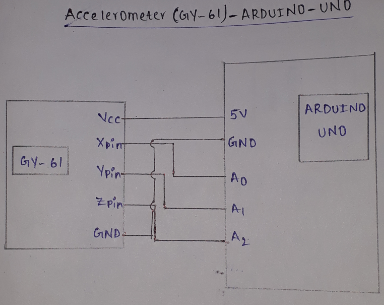 Accelerometer (GY-61)-ARDUINO-UNO
Vcc
Xpin
Ypin
Zpin
GND
GY-61
5V
GND
A0
A1
A2
ARDUINO
UNO